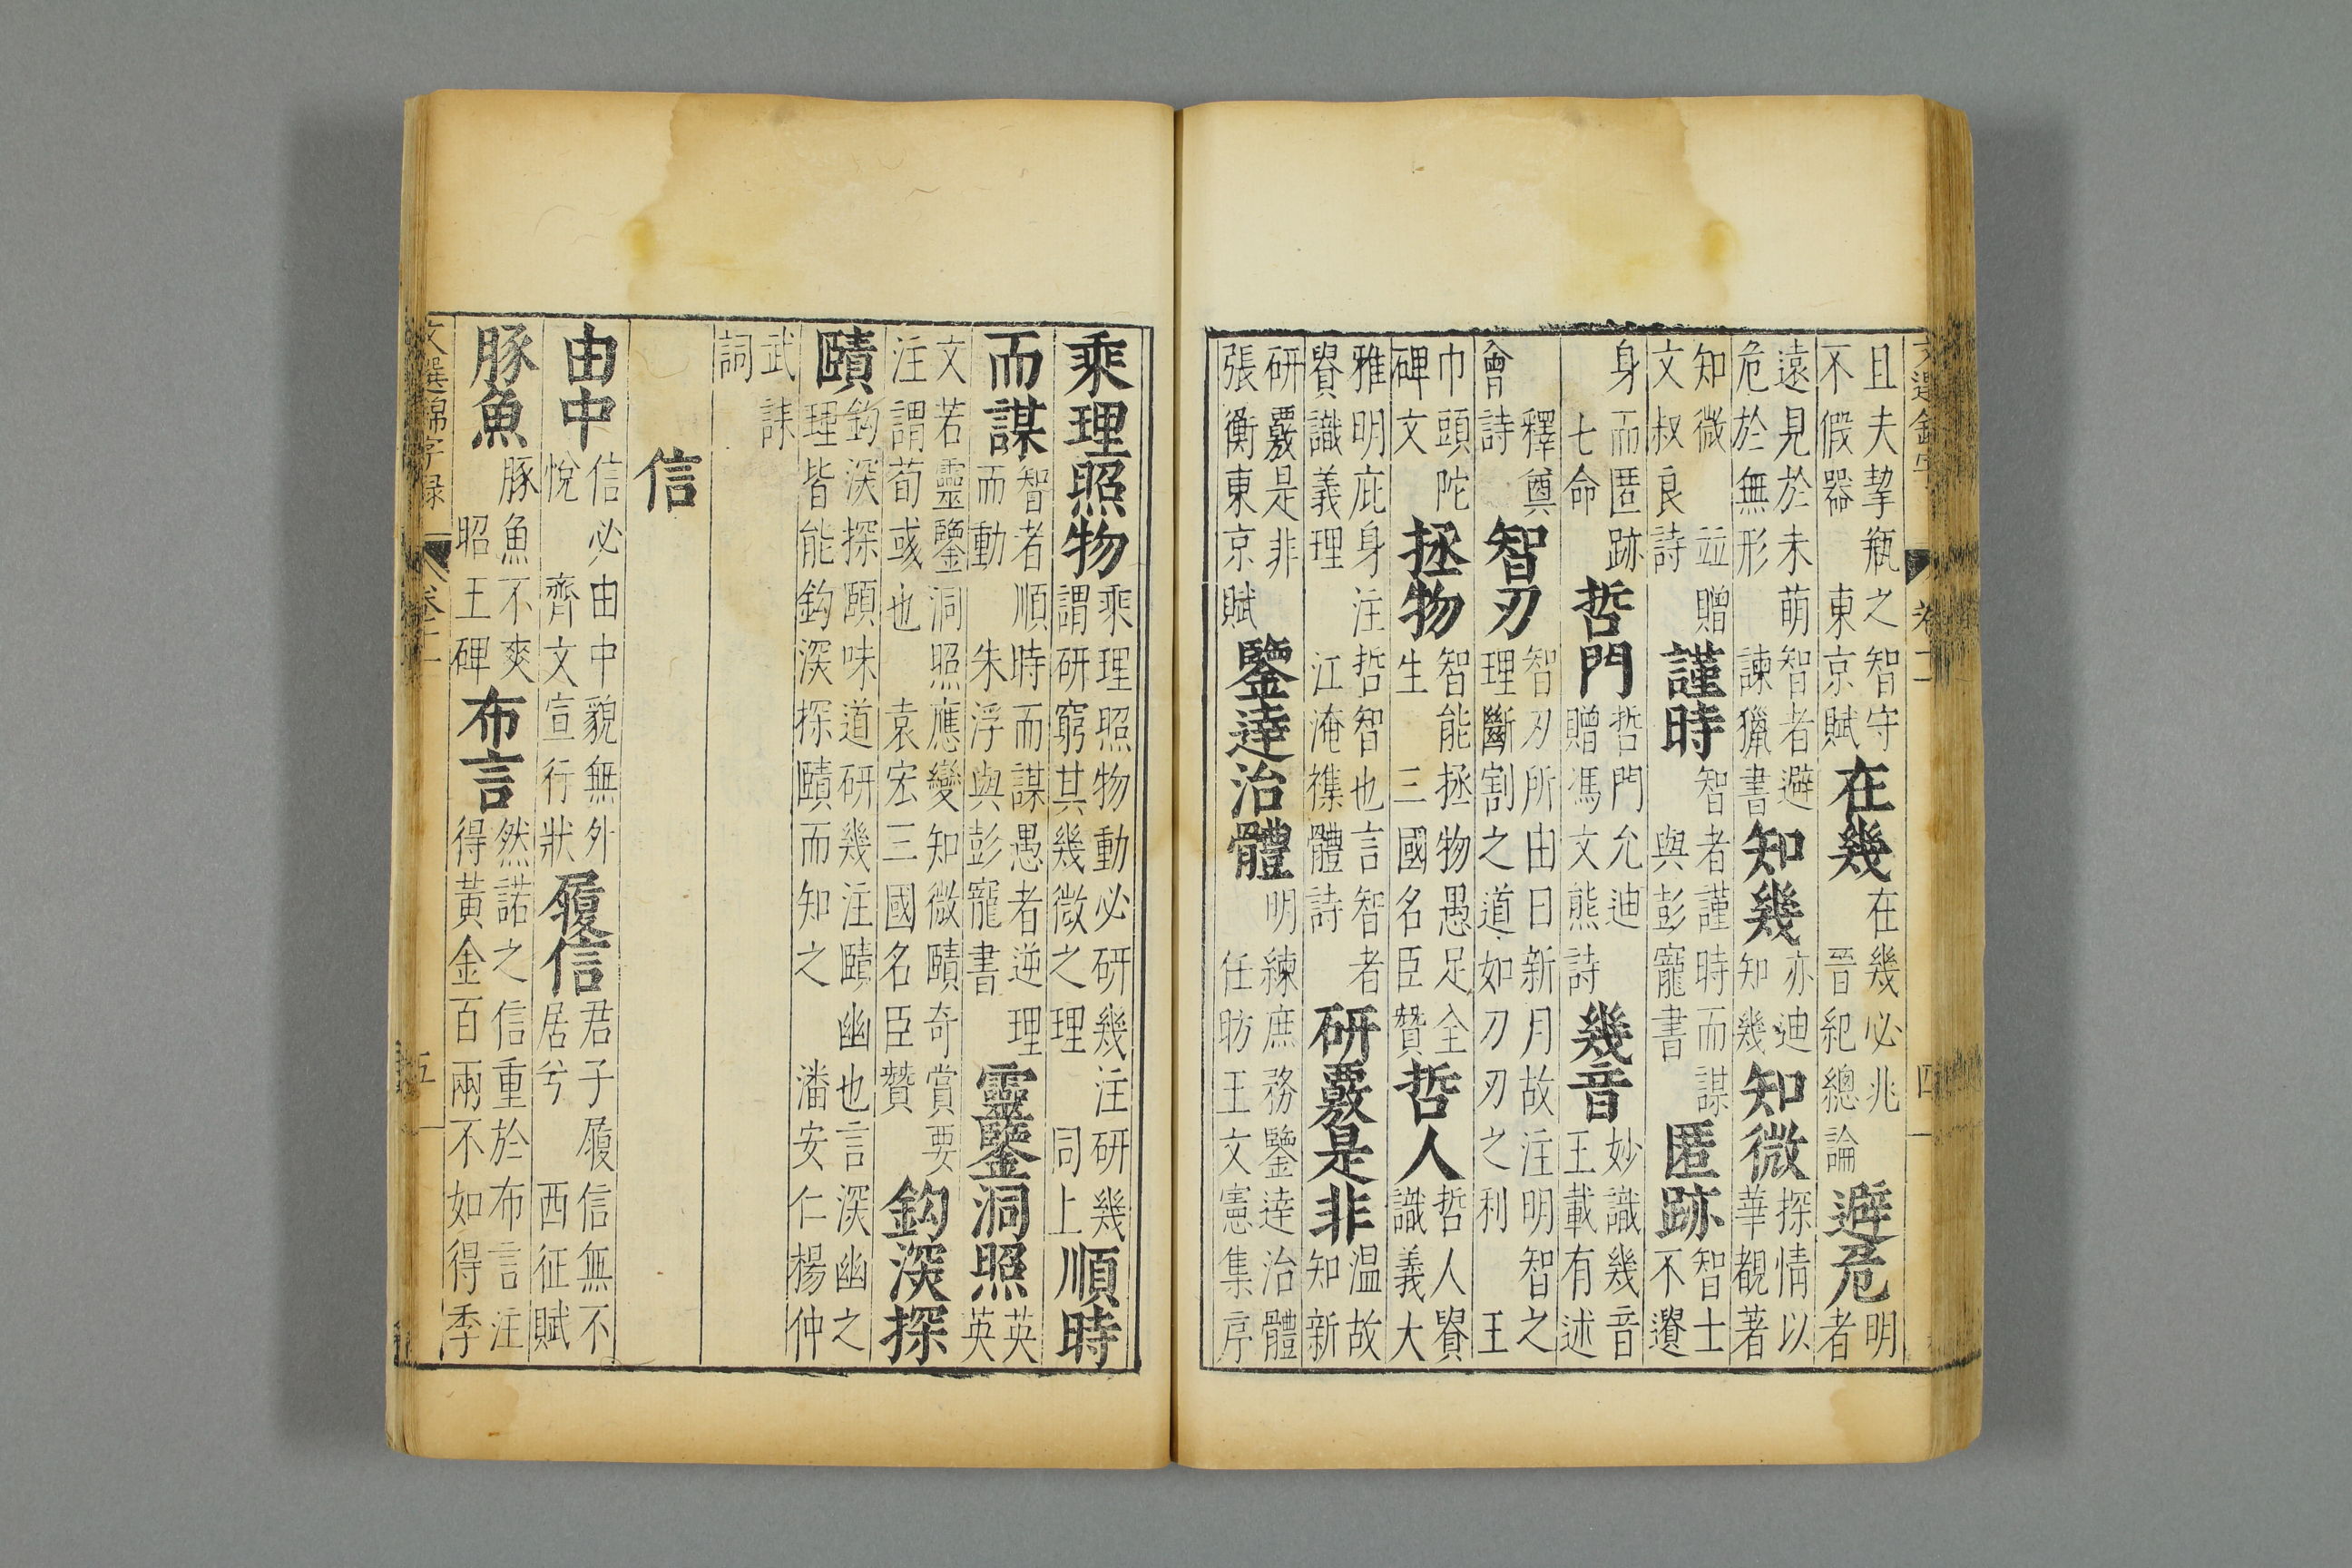 文選錦字 卷十一 四
且夫挈瓶之智守不假器 東京賦 在幾 在幾必兆 晉紀總論 避危 明者
遠見於未萌智者避危於無形 諫獵書 知幾 亦迪知幾 知微 探情以華覩著
知微 竝贈文叔良詩 謹時 智者謹時而謀 與彭寵書 匿跡 智士不遺
身而匿跡 七命 哲門 哲門允迪 贈馮文熊詩 幾音 妙識幾音王載有述
釋奠會詩 智刃 智刃所由日新月故注明智之理斷割之道如刀刃之利 王
巾頭陀碑文 拯物 智能拯物愚足全生 三國名臣贊 哲人 哲人賢識義大
雅明庇身注哲智也言智者賢識義理 江淹襍體詩 研覈是非 温故知新
研覈是非 張衡東京賦 鑒達治體 明練庶務鑒達治體 任昉王文憲集序
乘理照物 乘理照物動必研幾注研幾謂研窮其幾微之理 同上 順時
而謀 智者順時而謀愚者逆理而動 朱浮與彭寵書 靈鑒洞照 英英
文若靈鑒洞照應變知微賾奇賞要注謂荀彧也 袁宏三國名臣贊 鈎深探
賾 鈎深探賾味道研幾注賾幽也言深幽之理皆能鈎深探賾而知之 潘安仁楊仲
武誄詞
信
由中 信必由中貌無外悅 齊文宣行狀 履信 君子履信無不居兮 西征賦
豚魚 豚魚不爽 昭王碑 布言 然諾之信重於布言注得黃金百兩不如得季
文選錦字錄 卷十一 五